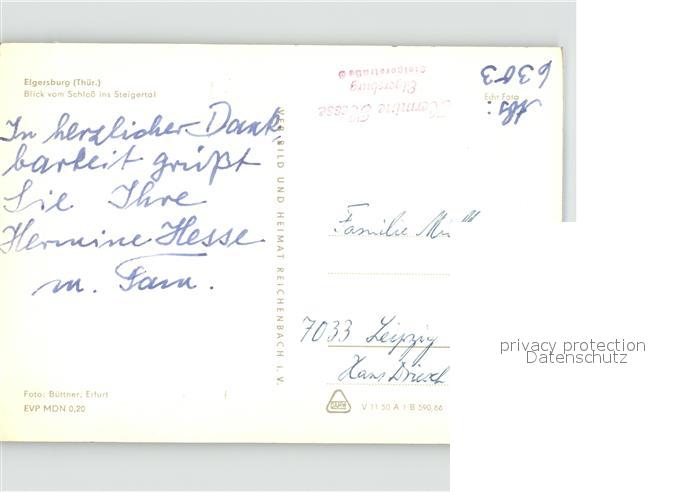 Elgersburg (Thür.)
Blick vom Schloß ins Steigertal
In herzlicher Dank
barkeit grüßt
Sie Ihre
Hermine Hesse
m. Fam.
Foto: Büttner, Erfurt
EVP MDN 0,20
VEB BILD UND HEIMAT REICHENBACH I. V.
Hermine Hesse
Elgersburg
Steigerstraße
Abs:
6303
Echt Foto
Familie
7033 Leipzig
Hans Driesch
V 11 50 A 1 B 590/66
privacy protection
Datenschutz